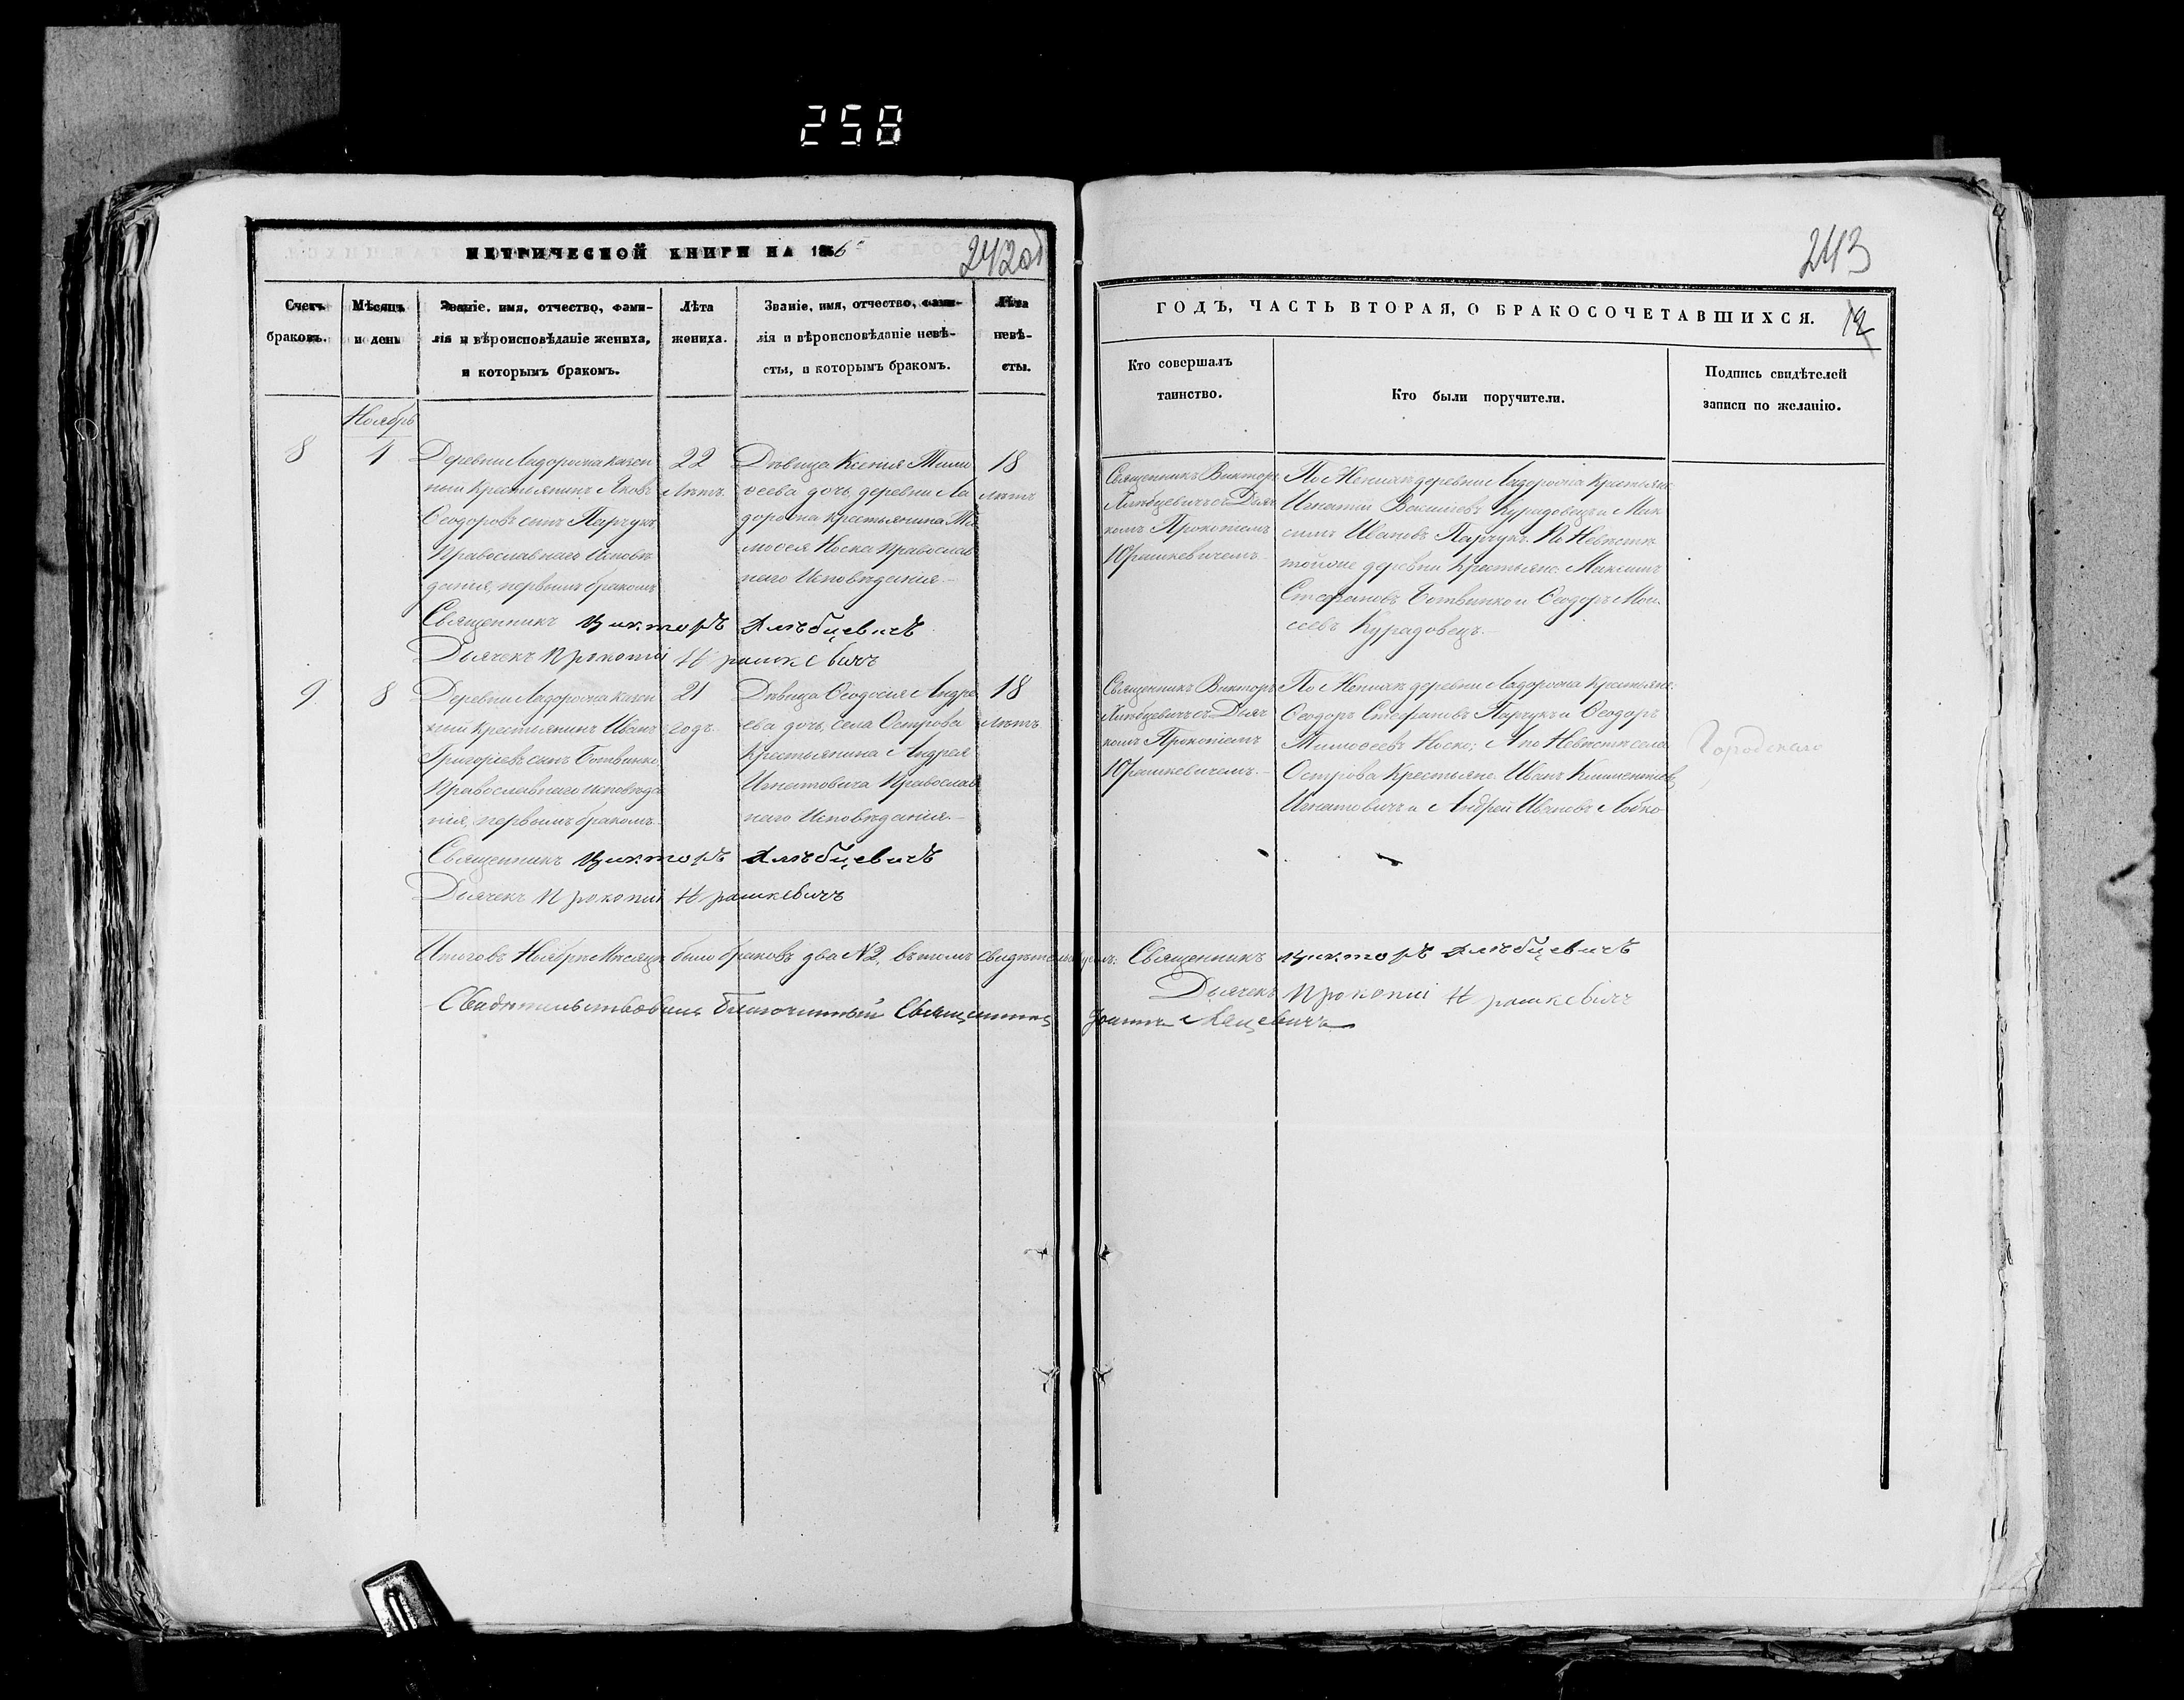 258
МЕТРИЧЕСКОЙ КНИГИ НА 1856
242об
Счетъ браковъ.
Мѣсяцъ и день
Званіе, имя, отчество, фами-
лія и вѣроисповѣданіе жениха,
и которымъ бракомъ.
Лѣта
жениха.
Званіе, имя, отчество, фами-
лія и вѣроисповѣданіе невѣ-
сты, и которымъ бракомъ.
Лѣта
невѣ-
сты.
Ноябрь
8
4
Деревни Ладорожа казен
ный крестьянинъ Яковъ
Ѳеодоровъ сынъ Парчукъ
Православнаго Исповѣ
данія, первымъ бракомъ
22
Лѣтъ.
Дѣвица Ксенія Тимо
ѳеева дочь, деревни Ла
крестьянина Ти
моѳея Носка Православ
наго Исповѣданія.
18
лѣтъ
Священникъ Викторъ Хлѣбцевичъ
Дьячекъ Прокопій Юрашкевичъ
9
8
Деревни казен
ный крестьянинъ Иванъ
Григоріевъ сынъ Ботвинко
Православнаго исповѣда
нія, первымъ бракомъ.
21
годъ.
Дѣвица Ѳеодосія Андре
ева дочь, села Острова
крестьянина Андрея
Игнатовича Православ
наго Исповѣданія.
18
Лѣтъ
Священникъ Викторъ Хлѣбцевичъ
Дьячекъ Прокопій Юрашкевичъ
Итого въ Ноябрѣ Мѣсяцѣ было браковъ два №2, въ томъ свидѣтельствуемъ: Священникъ Викторъ Хлѣбцевичъ
Дьячекъ Прокопій Юрашкевичъ
Свидѣтельствовалъ благочинный Священникъ Іоаннъ
243
ГОДЪ, ЧАСТЬ ВТОРАЯ, О БРАКОСОЧЕТАВШИХСЯ.
12
Кто совершалъ
таинство.
Кто были поручители.
Подпись свидѣтелей
записи по желанію.
Священникъ Викторъ
Хлѣбцевичъ съ Дьяч
комъ Прокопіемъ
Юрашкевичемъ.
По Женихѣ деревни крестьяне
Игнатій Васильевъ Курадовецъ и Мак
симъ Ивановъ Парчукъ. По Невѣстѣ
тойже деревни Крестьяне: Максимъ
Стефановъ Ботвинко и Ѳеодоръ Мои
сеевъ Курадовецъ.
Священникъ Викторъ
Хлѣбцевичъ съ Дьяч
комъ Прокопіемъ
Юрашкевичемъ.
По Женихѣ деревни Крестьяне:
Ѳеодоръ Стефановъ Парчукъ и Ѳеодоръ
Тимоѳеевъ Носко; А по Невѣстѣ села
Острова Крестьяне: Иванъ Климентіевъ
Игнатовичъ и Андрей Ивановъ Лобко
Городскаго